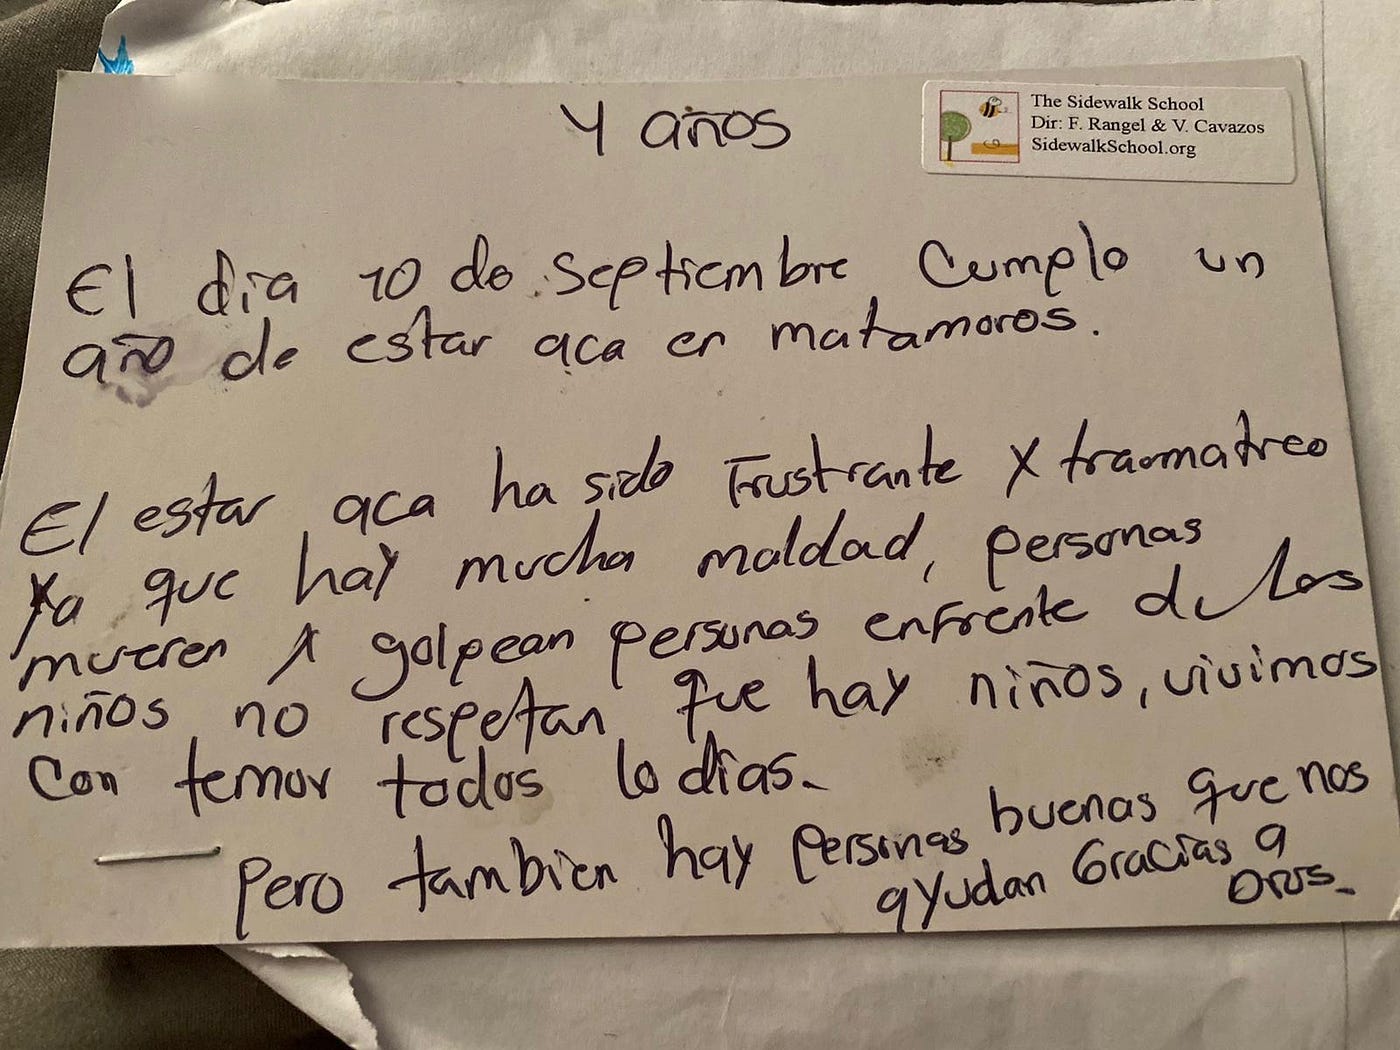 4 años
The Sidewalk School
Dir: F. Rangel & V. Cavazos
SidewalkSchool.org
El dia 10 de Septiembre Cumplo un
año de estar aca en matamoros.
El estar aca ha sido Frustrante y traomatico
ya que hay mucha maldad, personas
mueren y golpean personas enfrente de los
niños no respetan que hay niños, vivimos
Con temor todos lo dias.
Pero tambien hay Personas buenas que nos
ayudan Gracias a
Dios.